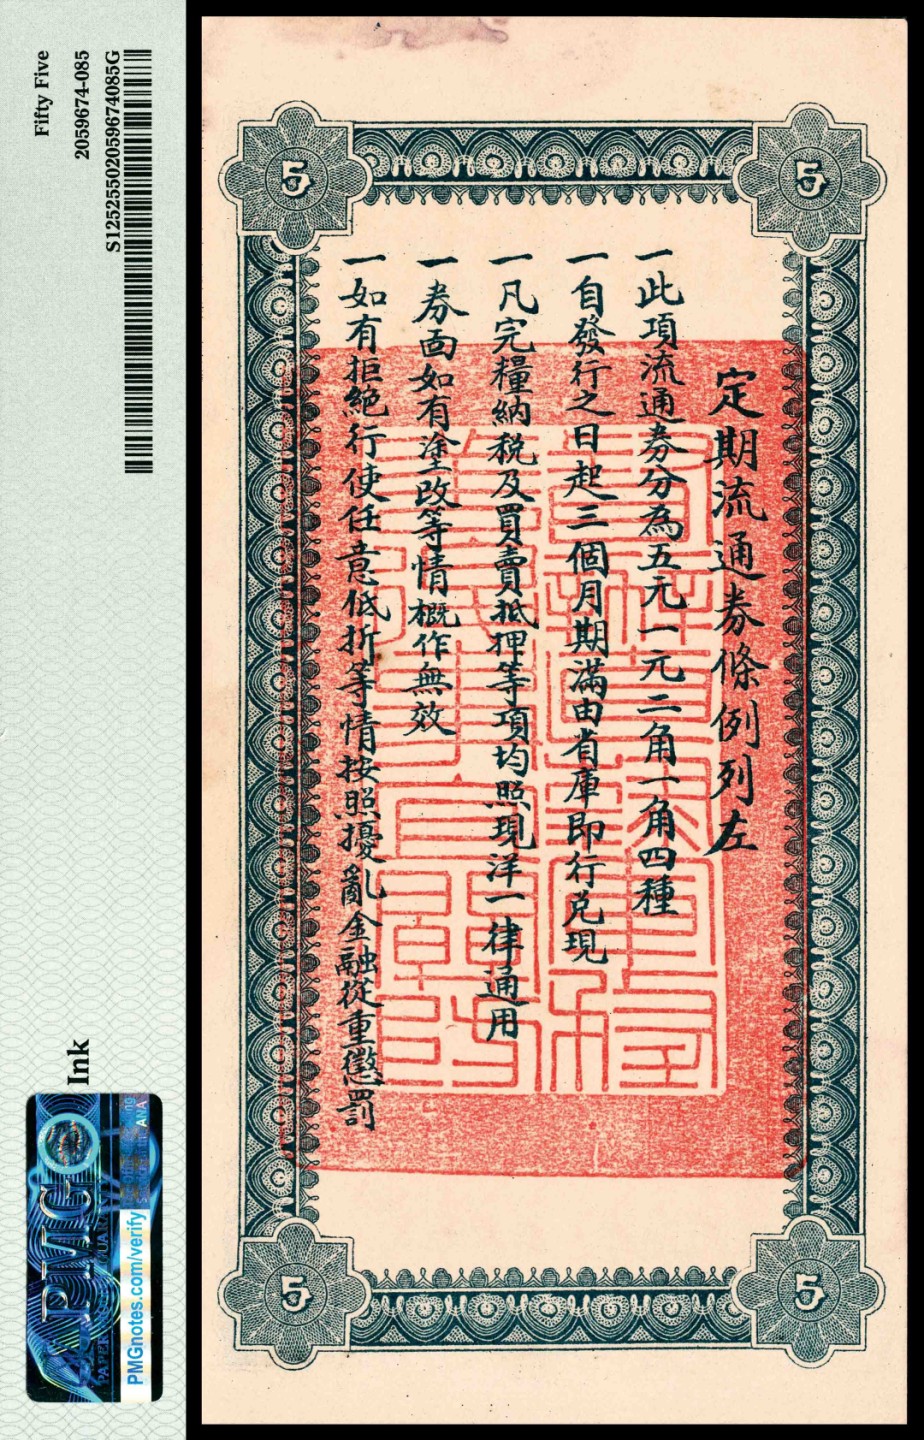 Fifty Five
2059674-085
S12525502059674085G
Ink
PMG
PAPER
ANA
PMGnotes.com/verify
5
5
定期流通券條例列左
一此項流通券分為五元一元二角一角四種
一自發行之日起三個月期滿由省庫即行兌現
一凡完糧納稅及買賣抵押等項均照現洋一律通用
一券面如有塗改等情概作無效
一如有拒絕行使任意低折等情按照擾亂金融從重懲罰
5
5